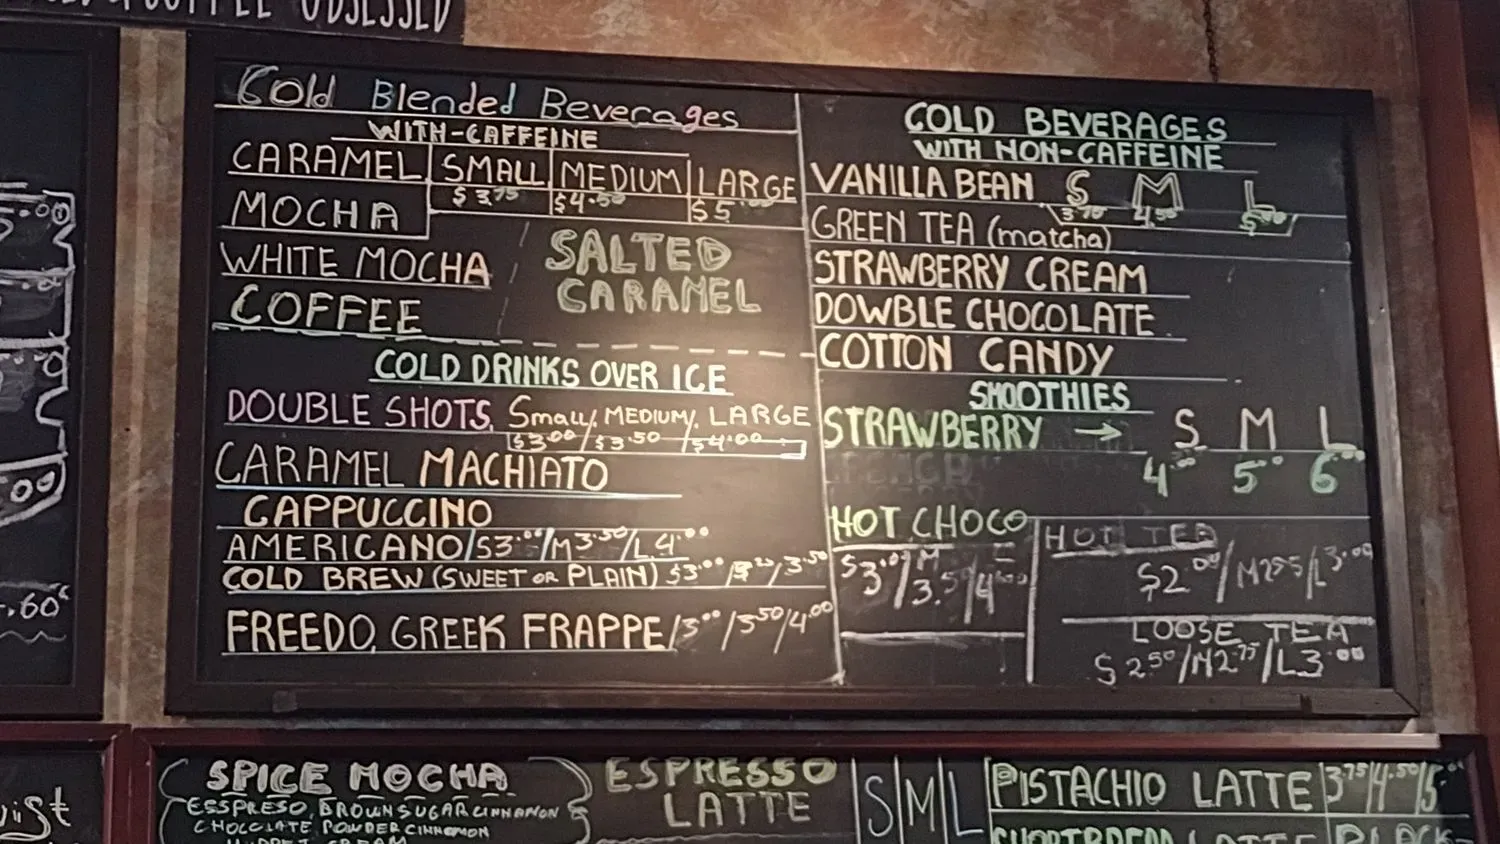 COFFEE OBSESSED
Cold Blended Beverages
WITH-CAFFEINE
CARAMEL SMALL MEDIUM LARGE
$3.75 $4.50 $5.00
MOCHA
WHITE MOCHA
COFFEE
SALTED
CARAMEL
COLD DRINKS OVER ICE
DOUBLE SHOTS, Small/ MEDIUM/ LARGE
$3.00/$3.50/$4.00
CARAMEL MACHIATO
CAPPUCCINO
AMERICANO/S3.00/M3.50/L4.00
COLD BREW (SWEET OR PLAIN) $3.00/3.25/3.50
FREEDO, GREEK FRAPPE/3.00/3.50/4.00
COLD BEVERAGES
WITH NON-CAFFEINE
VANILLA BEAN S M L
3.75 4.50 5.00
GREEN TEA (matcha)
STRAWBERRY CREAM
DOWBLE CHOCOLATE
COTTON CANDY
SMOOTHIES
STRAWBERRY → S M L
4.00 5.00 6.00
HOT CHOCO
$3.00/M 3.50/L 4.00
HOT TEA
$2.00/M2.55/L3.00
LOOSE TEA
$2.50/M2.75/L3.00
.60¢
SPICE MOCHA
ESSPRESO, BROWN SUGAR CINNAMON
CHOCOLATE POWDER CINNAMON
ESPRESSO
LATTE
S|M|L
PISTACHIO LATTE 3.75/4.50/5.00
LATTE BLACK-